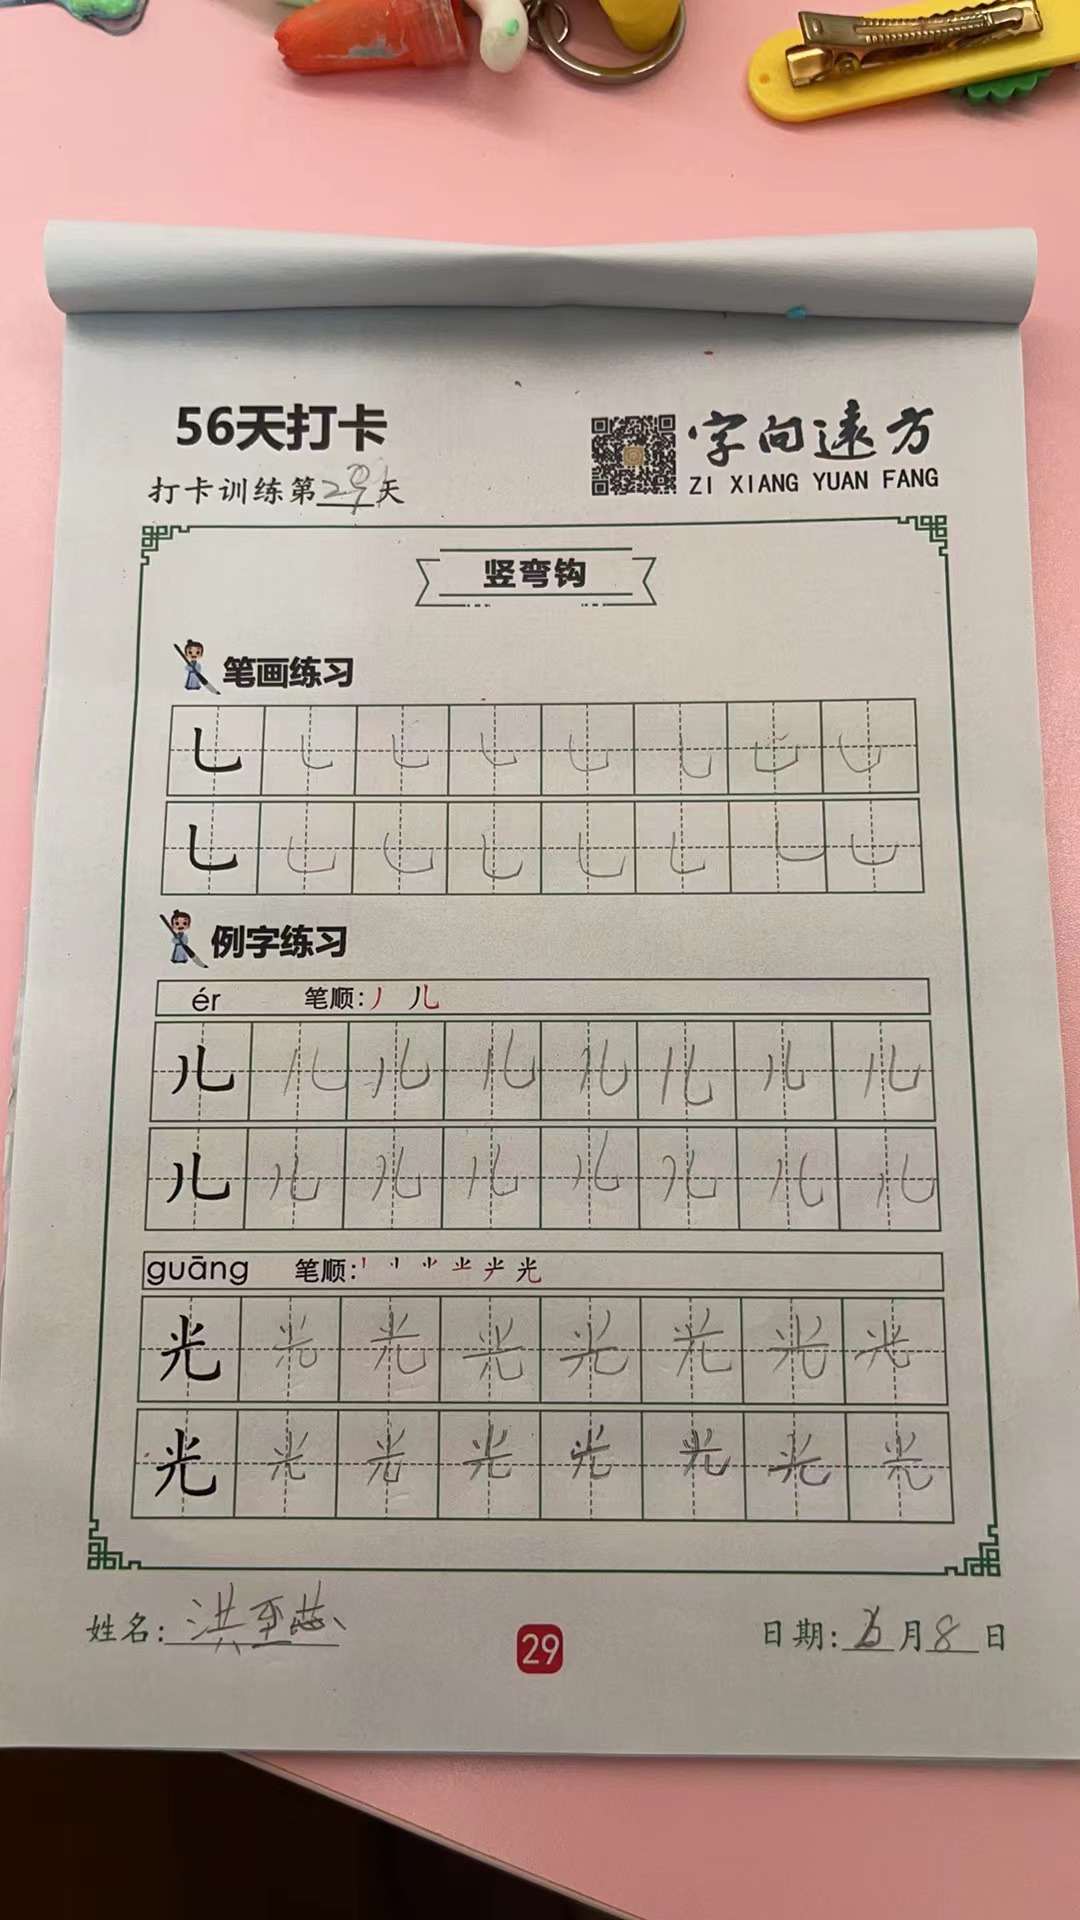 56天打卡
字向远方
ZI XIANG YUAN FANG
打卡训练第29天
竖弯钩
笔画练习
例字练习
ér 笔顺: 丿 儿
儿 儿 儿 儿 儿 儿 儿 儿
儿 儿 儿 儿 儿 儿 儿 儿
guāng 笔顺: 光
光 光 光 光 光 光 光 光
光 光 光 光 光 光 光 光
姓名: 洪
29
日期: 月8日